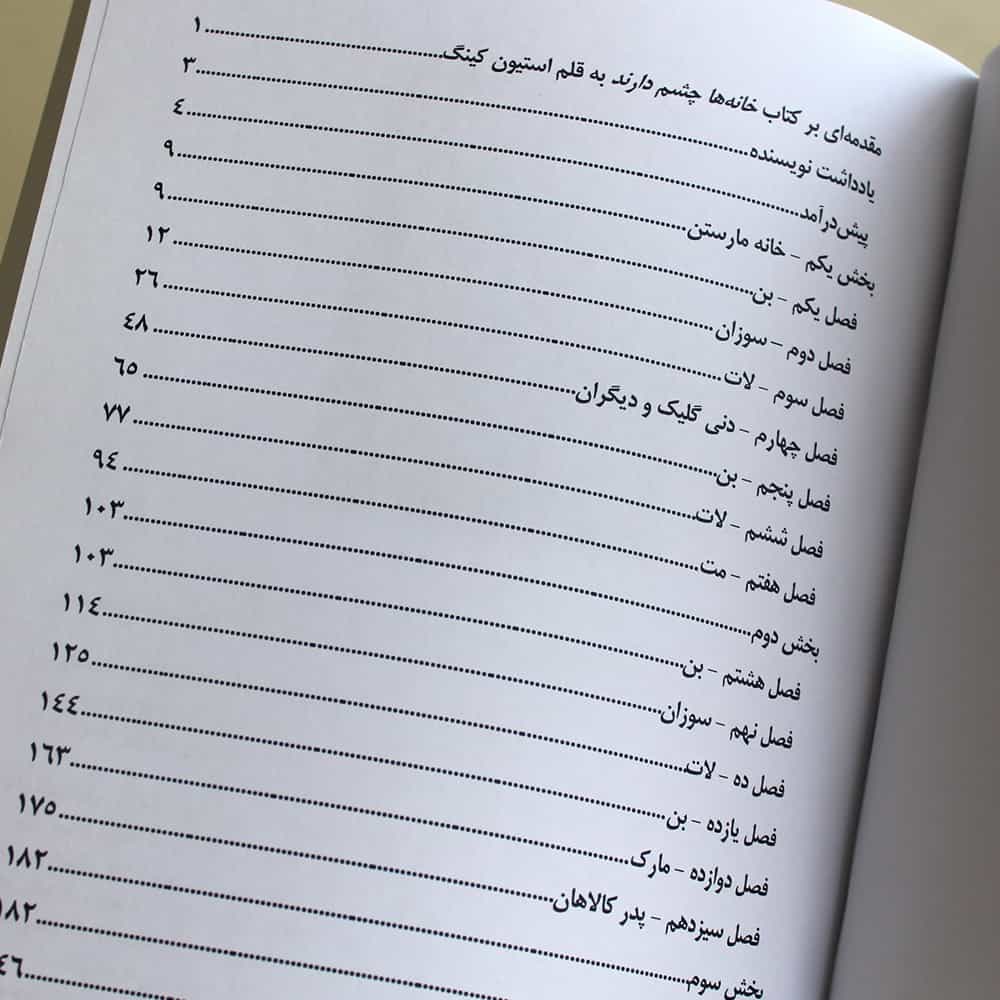 مقدمه‌ای بر کتاب خانه‌ها چشم دارند به قلم استیون کینگ........................١
یادداشت نویسنده........................٣
پیش‌درآمد........................٤
بخش یکم – خانه مارستن........................٩
فصل یکم – بن........................٩
فصل دوم – سوزان........................١٢
فصل سوم – لات........................٢٦
فصل چهارم – دنی گلیک و دیگران........................٤٨
فصل پنجم – بن........................٦٥
فصل ششم – لات........................٧٧
فصل هفتم – مت........................٩٤
بخش دوم........................١٠٣
فصل هشتم – بن........................١٠٣
فصل نهم – سوزان........................١١٤
فصل ده – لات........................١٢٥
فصل یازده – بن........................١٤٤
فصل دوازده – مارک........................١٦٣
فصل سیزدهم – پدر کالاهان........................١٧٥
بخش سوم........................١٨٢
........................١٨٢